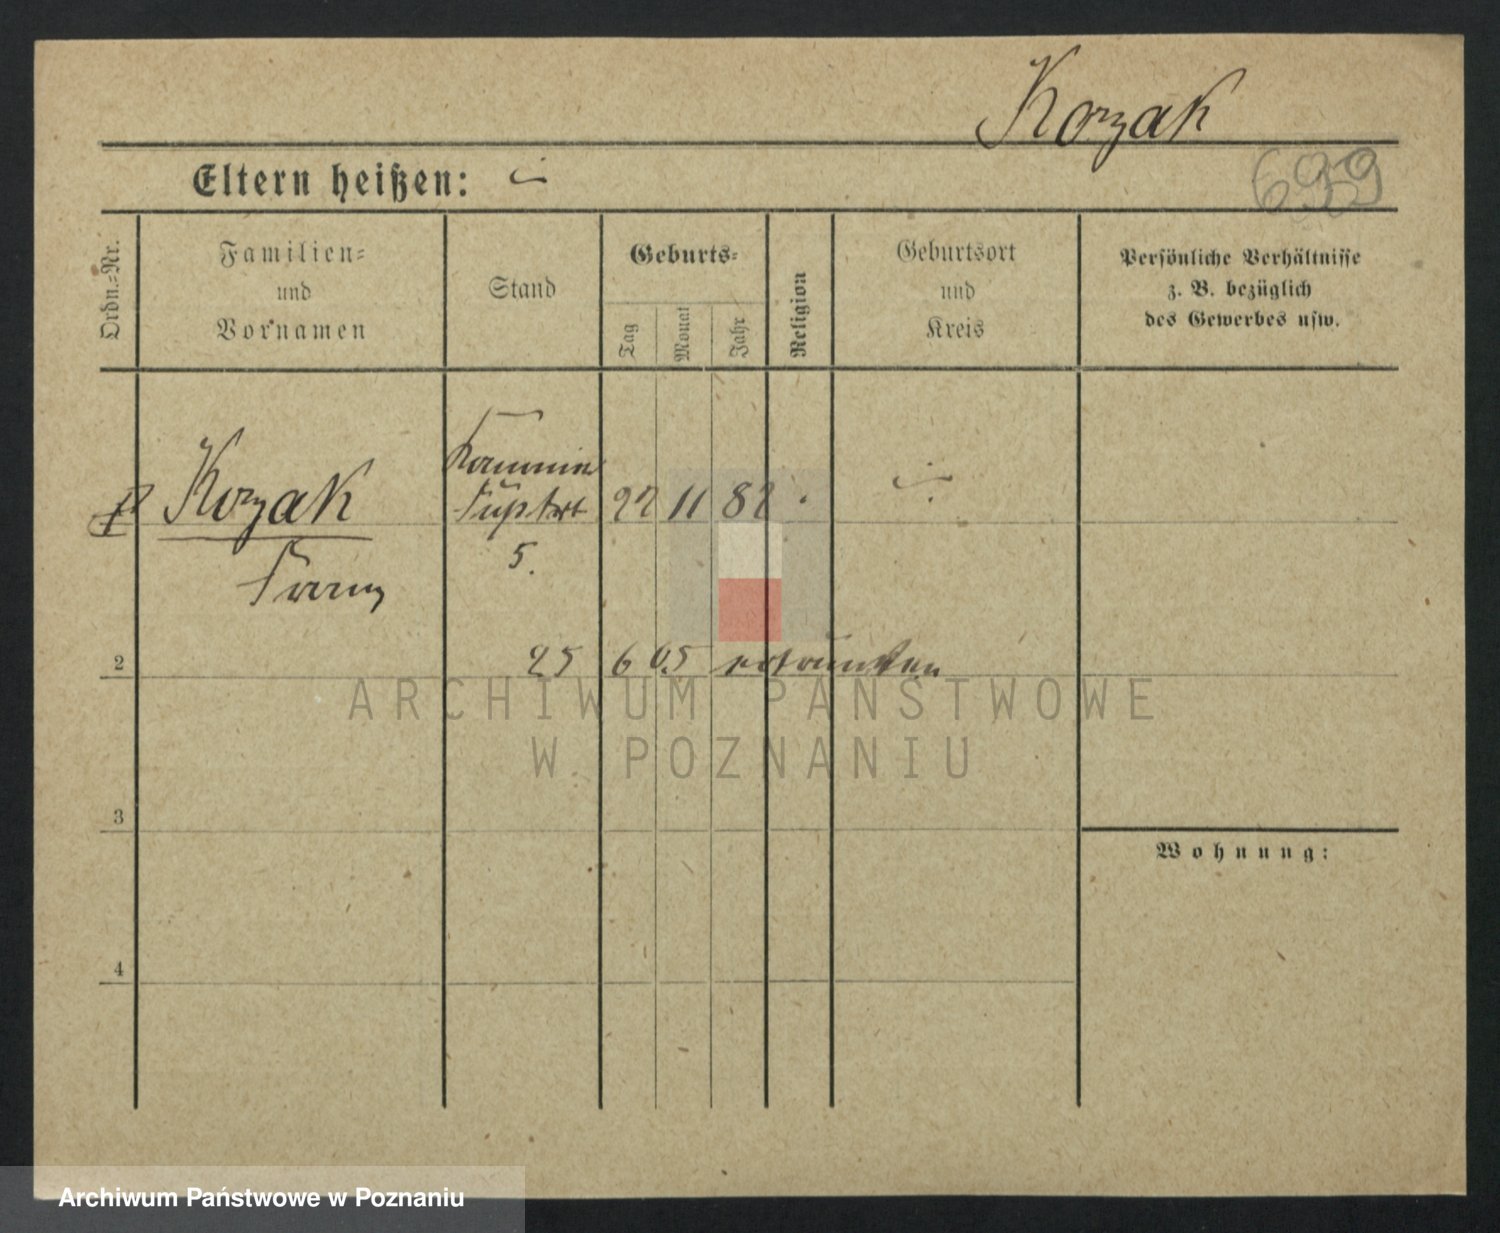 Kozak
699
Eltern heißen:
Ordn.=Nr.
Familien=
und
Vornamen
Stand
Geburts=
Tag
Monat
Jahr
Religion
Geburtsort
und
Kreis
Persönliche Verhältnisse
z. B. bezüglich
des Gewerbes usw.
Kozak
Franz
Füß Art
5.
22 11 82
2
25 6 05 ertrunken
ARCHIWUM PAŃSTWOWE
W POZNANIU
3
Wohnung:
4
Archiwum Państwowe w Poznaniu